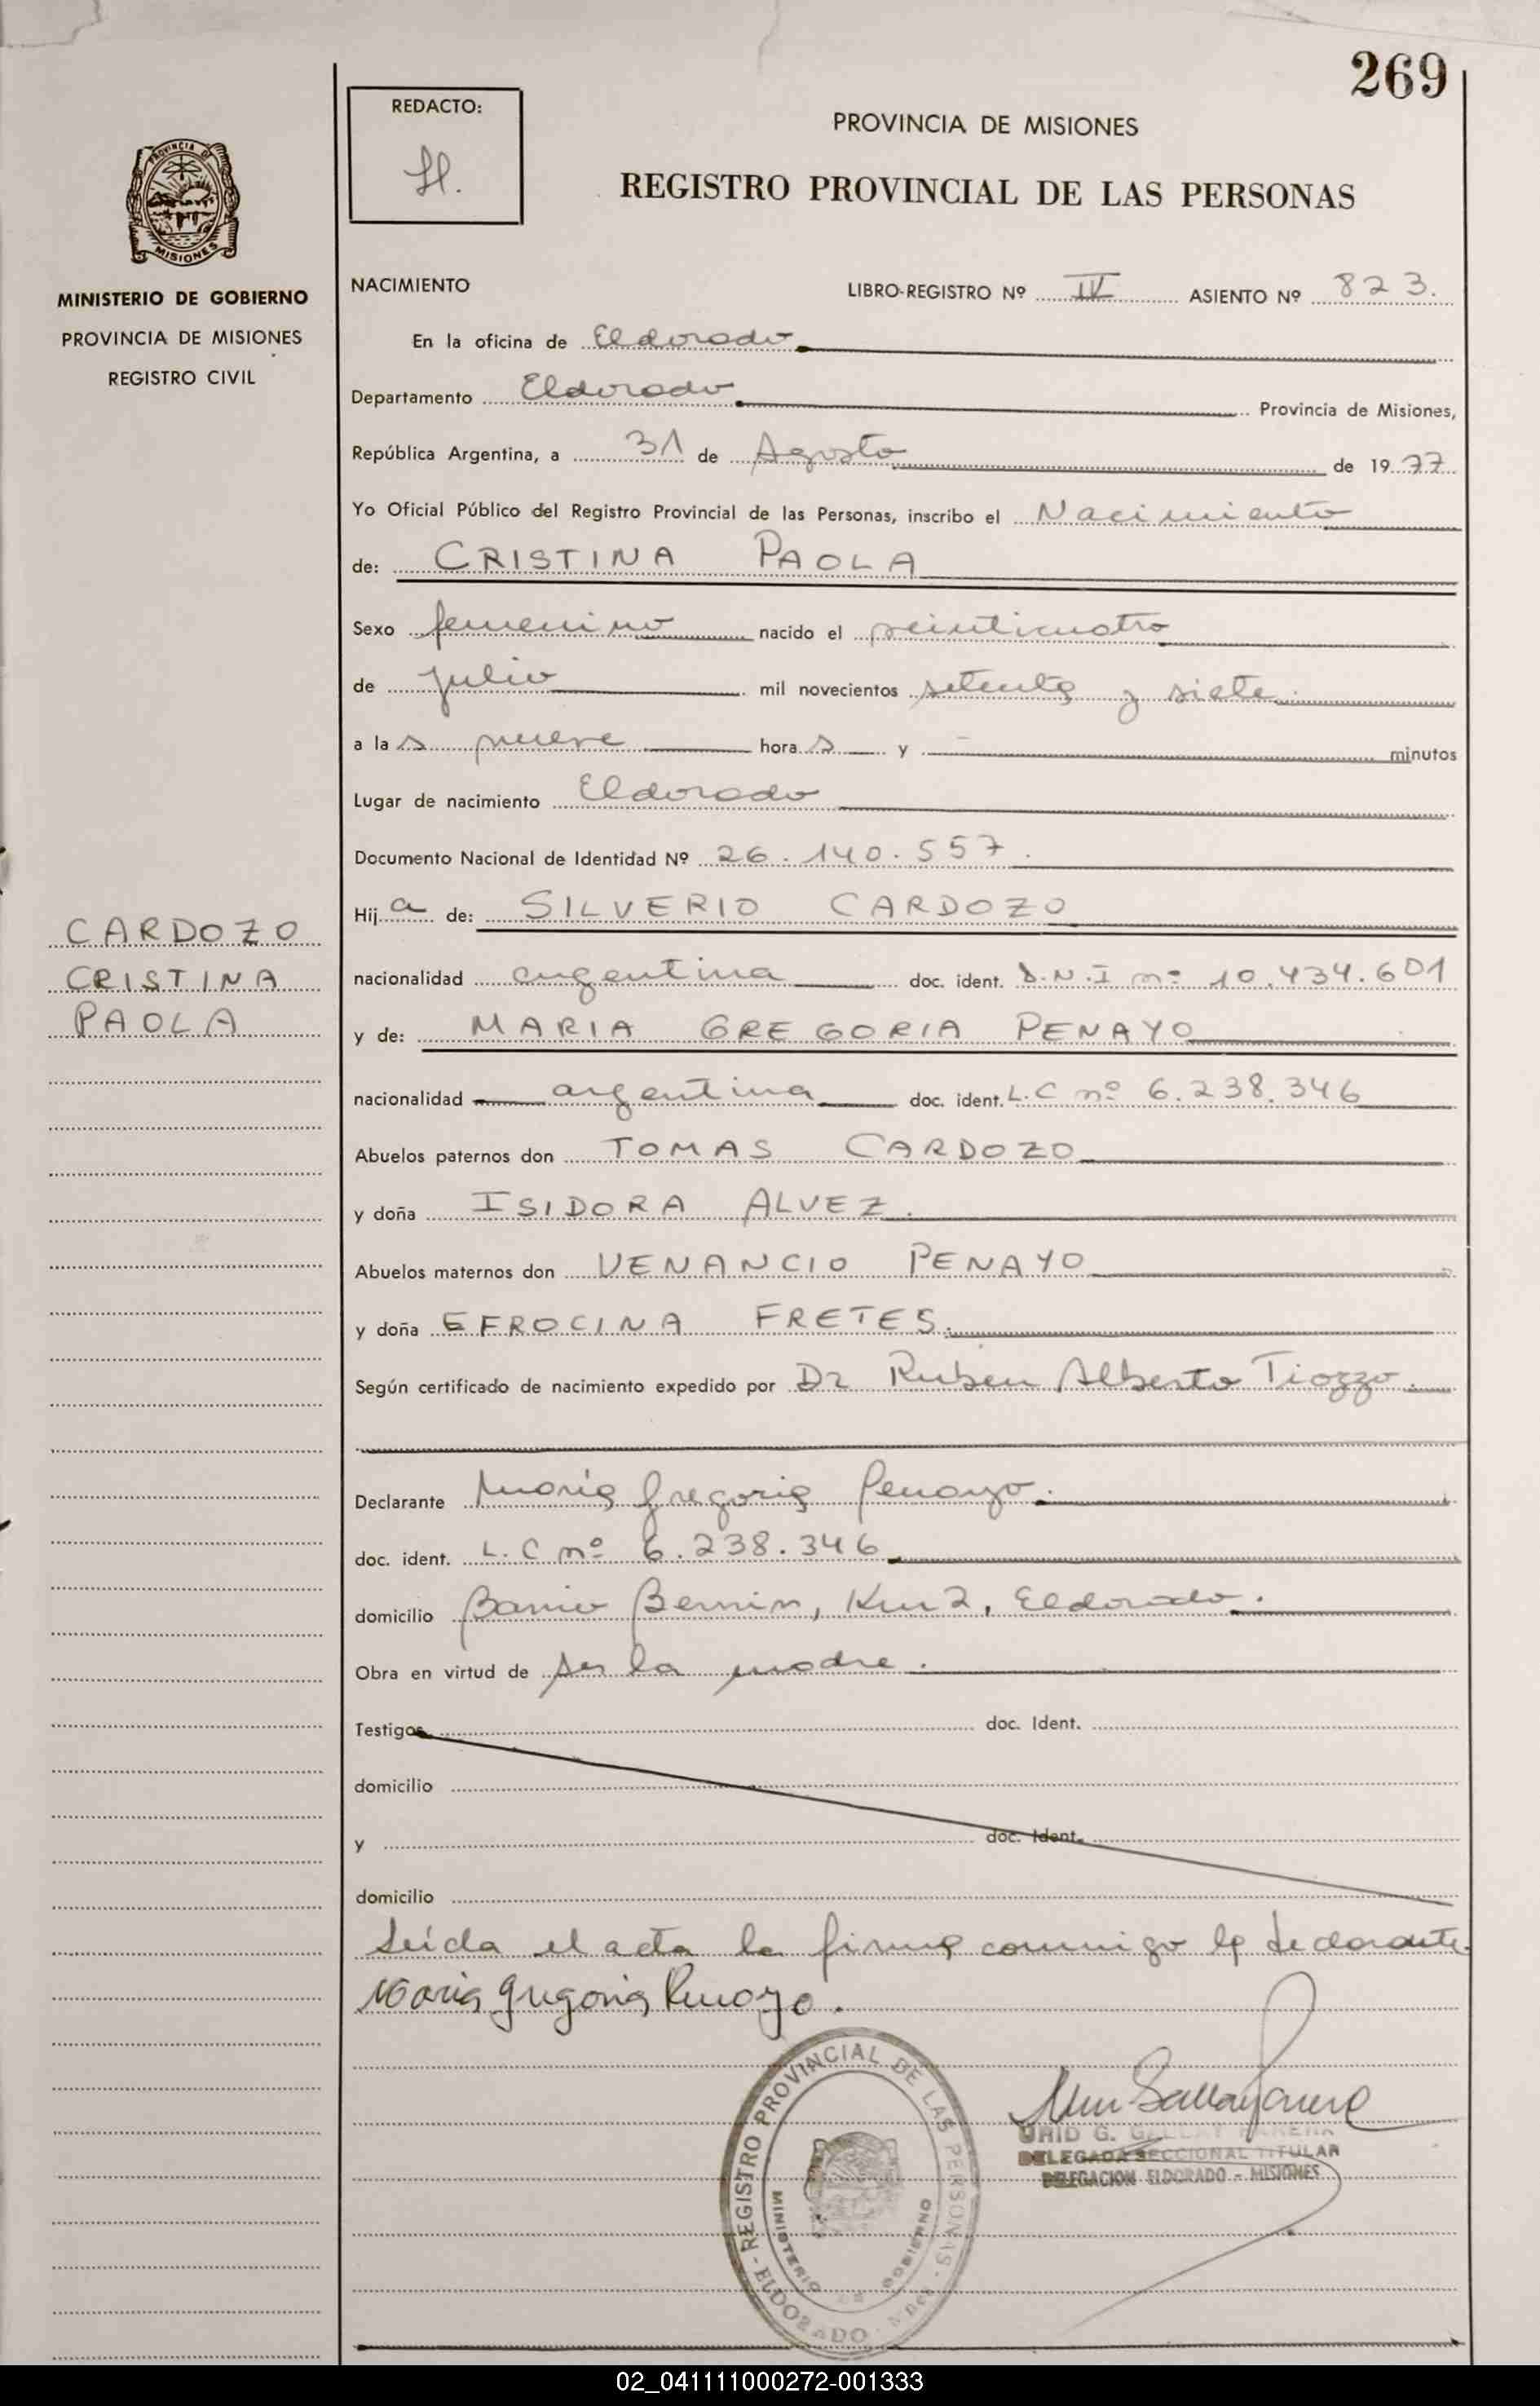 269
REDACTO:
PROVINCIA DE MISIONES
REGISTRO PROVINCIAL DE LAS PERSONAS
PROVINCIA DE
MISIONES
MINISTERIO DE GOBIERNO
PROVINCIA DE MISIONES
REGISTRO CIVIL
NACIMIENTO LIBRO-REGISTRO Nº IV ASIENTO Nº 823.
En la oficina de Eldorado
Departamento Eldorado Provincia de Misiones,
República Argentina, a 31 de Agosto de 1977
Yo Oficial Público del Registro Provincial de las Personas, inscribo el Nacimiento
de: CRISTINA PAOLA
Sexo femenino nacido el veinticuatro
de julio mil novecientos setenta y siete.
a las nueve horas y - minutos
Lugar de nacimiento Eldorado
Documento Nacional de Identidad Nº 26.140.557.
Hija de: SILVERIO CARDOZO
CARDOZO
CRISTINA
PAOLA
nacionalidad argentina doc. ident. D.N.I nº 10.434.601
y de: MARIA GREGORIA PENAYO
nacionalidad argentina doc. ident. L.C nº 6.238.346
Abuelos paternos don TOMAS CARDOZO
y doña ISIDORA ALVEZ.
Abuelos maternos don VENANCIO PENAYO
y doña EFROCINA FRETES.
Según certificado de nacimiento expedido por Dr Ruben Alberto Tiozzo.
Declarante María Gregoria Penayo.
doc. ident. L.C nº 6.238.346
domicilio Barrio Km 2, Eldorado.
Obra en virtud de ser la madre.
Testigos doc. Ident.
domicilio
y doc. Ident.
domicilio
Leída el acta la firma conmigo la declarante
Maria Gregoria Penayo.
REGISTRO PROVINCIAL DE LAS PERSONAS
MINISTERIO DE GOBIERNO
ELDORADO
G. GALLAY
DELEGADA SECCIONAL TITULAR
DELEGACION ELDORADO - MISIONES
02_041111000272-001333